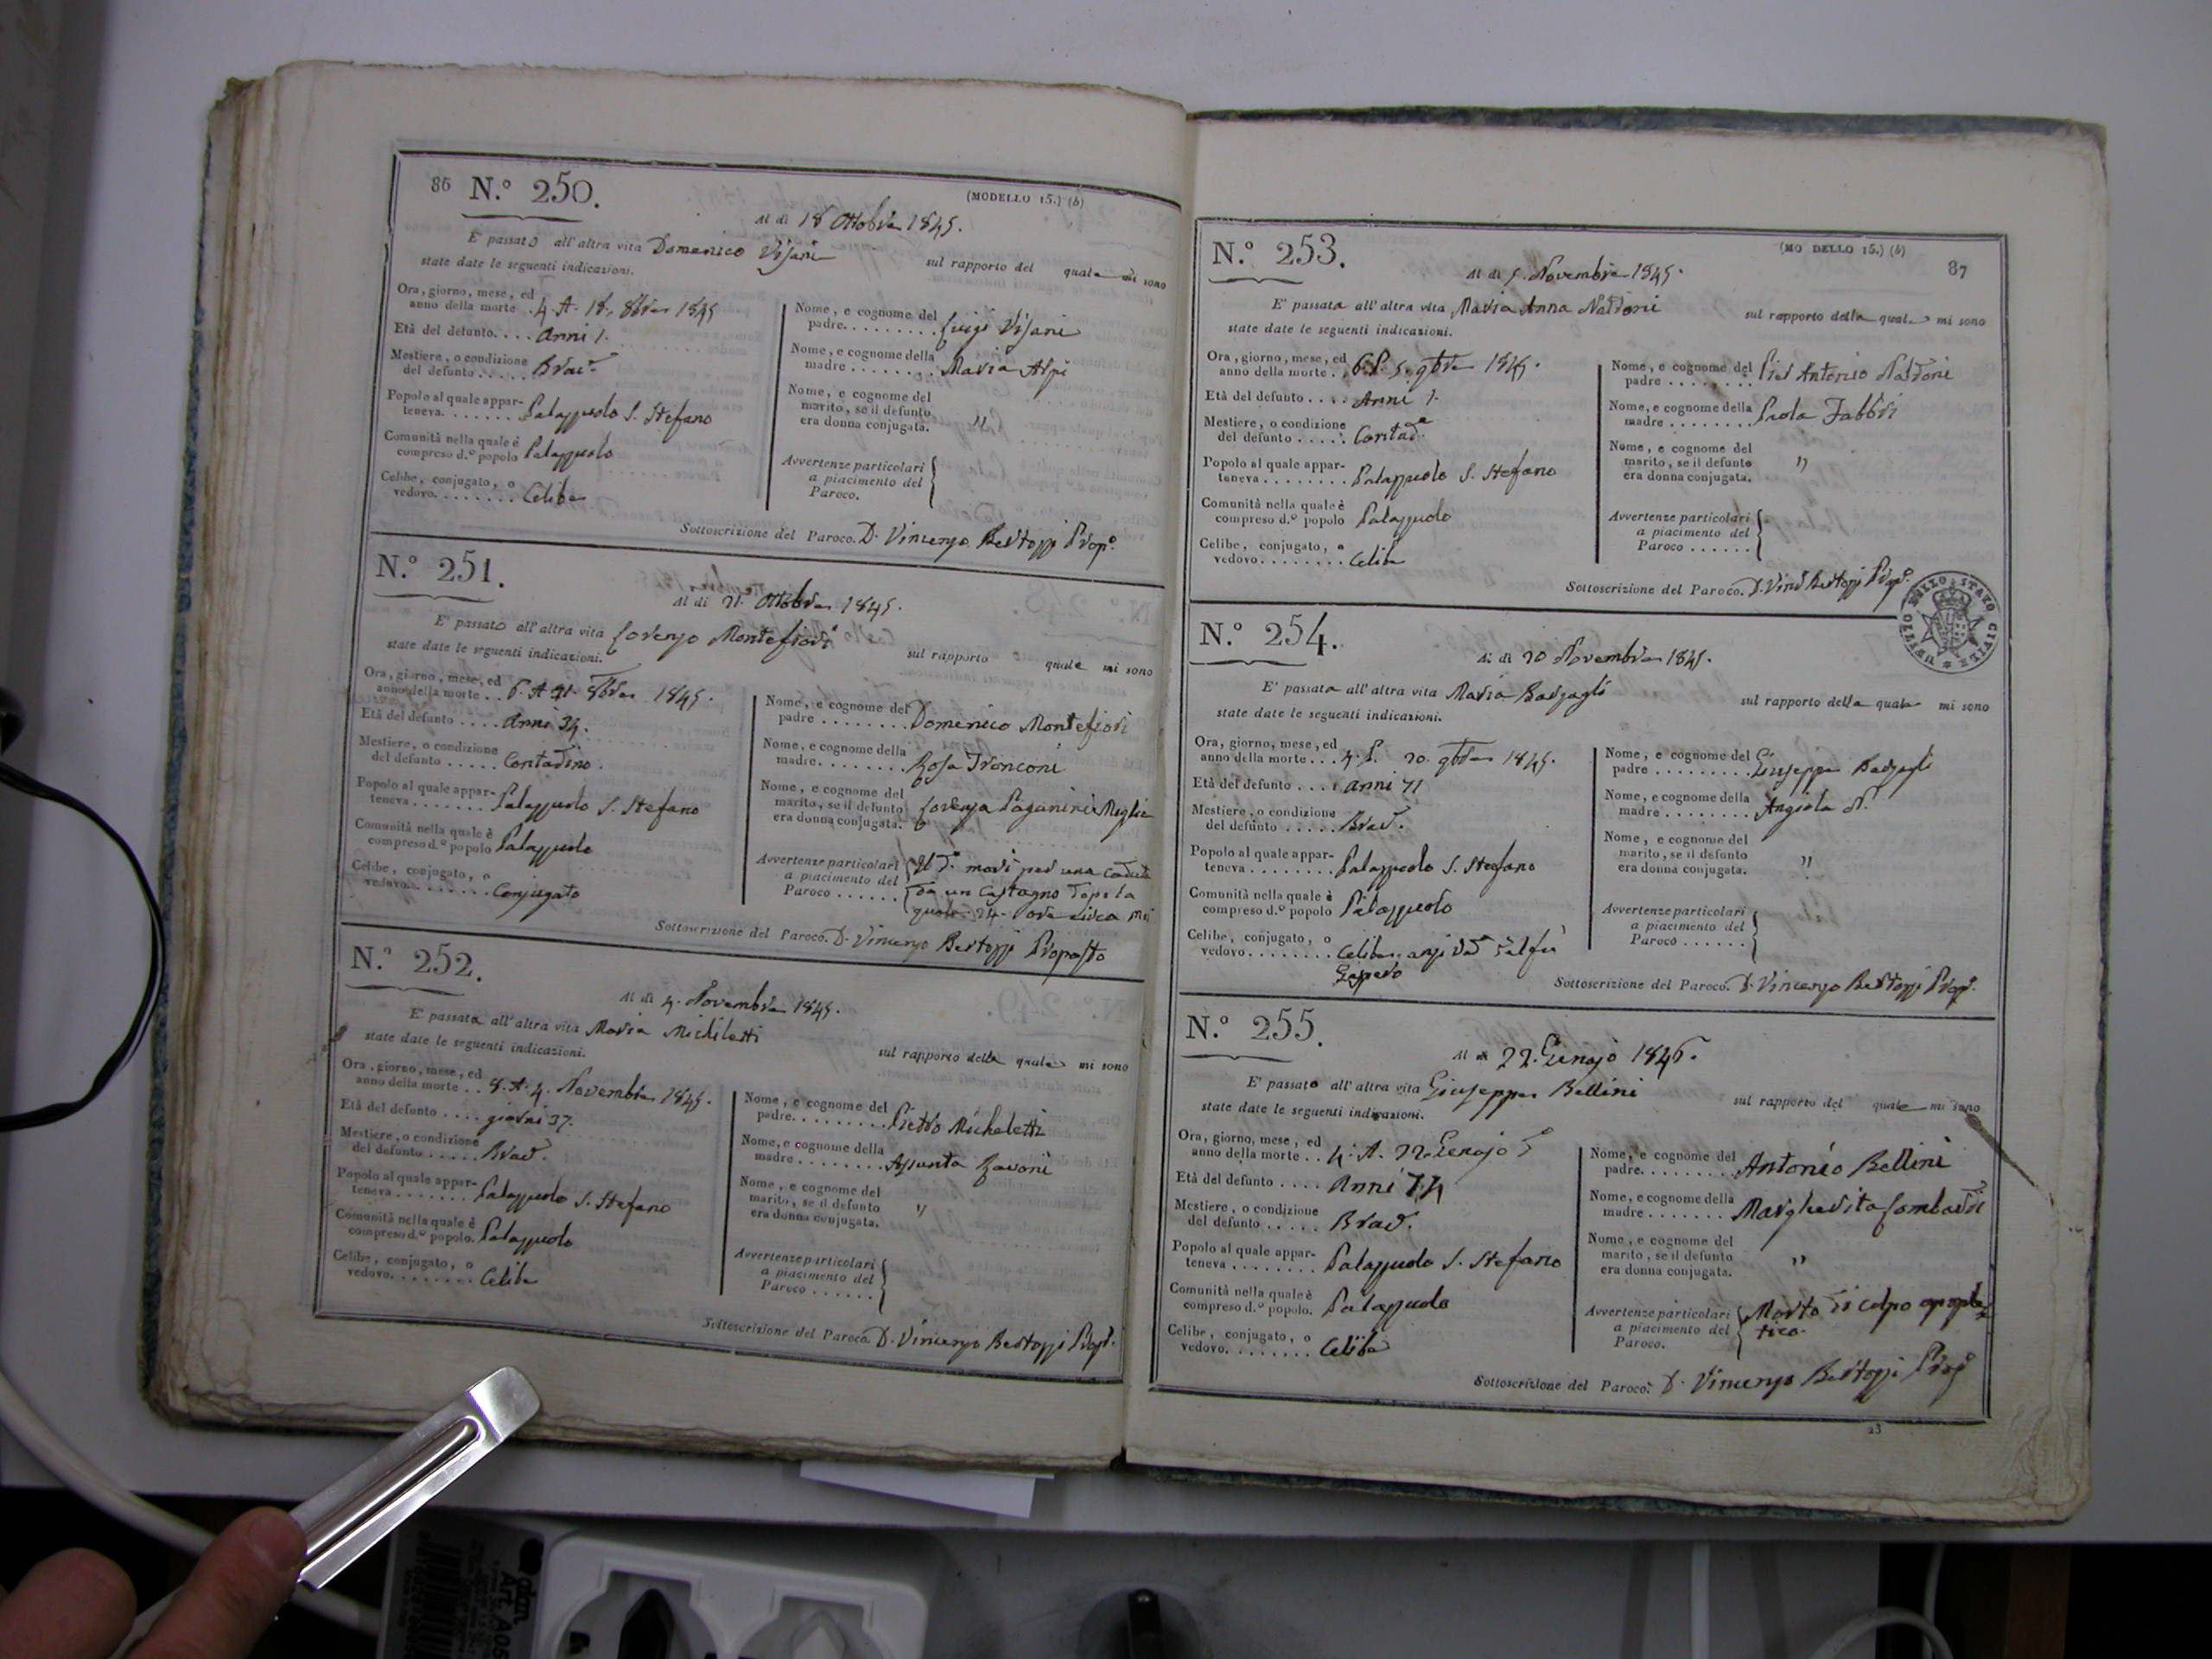 86 N.º 250.
(MODELLO 15.) (b)
Al dì 18 Ottobre 1845.
E' passato all'altra vita Domenico Visani sul rapporto del quale mi sono
state date le seguenti indicazioni.
Ora, giorno, mese, ed
anno della morte . 4. A. 18. 8bre 1845
Età del defunto. . . . anni 1.
Mestiere, o condizione
del defunto . . . . .
Popolo al quale appar-
teneva. . . . . . . Palazzuolo S. Stefano
Comunità nella quale è
compreso d.º popolo Palazzuolo
Celibe, conjugato, o
vedovo. . . . . . . . Celibe
Nome, e cognome del
padre. . . . . . . . . Luigi Visani
Nome, e cognome della
madre . . . . . . . . Maria Alpi
Nome, e cognome del
marito, se il defunto
era donna conjugata. "
Avvertenze particolari
a piacimento del
Paroco.
Sottoscrizione del Paroco. D. Vincenzo Bertozzi Prop.º
N.º 251.
Al dì 21. Ottobre 1845.
E' passato all'altra vita Lorenzo Montefiori sul rapporto quale mi sono
state date le seguenti indicazioni.
Ora, giorno, mese, ed
anno della morte . . 6. A 21. 8bre 1845.
Età del defunto . . . . anni 34.
Mestiere, o condizione
del defunto . . . . . Contadino.
Popolo al quale appar-
teneva . . . . . . . Palazzuolo S. Stefano
Comunità nella quale è
compreso d.º popolo Palazzuolo
Celibe, conjugato, o
vedovo. . . . . . . . Conjugato
Nome, e cognome del
padre . . . . . . . . Domenico Montefiori
Nome, e cognome della
madre. . . . . . . . Rosa Tronconi
Nome, e cognome del
marito, se il defunto Lorenza Paganini Moglie
era donna conjugata.
Avvertenze particolari morì per una caduta
a piacimento del da un Castagno dopo la
Paroco . . . . . . quale 24. ore circa
Sottoscrizione del Paroco. D. Vincenzo Bertozzi Proposto
N.º 252.
Al dì 4. Novembre 1845.
E' passata all'altra vita Maria Michiletti sul rapporto della quale mi sono
state date le seguenti indicazioni.
Ora, giorno, mese, ed
anno della morte . . 8. A. 4. Novembre 1845.
Età del defunto . . . . giorni 37.
Mestiere, o condizione
del defunto . . . . . Brac.
Popolo al quale appar-
teneva . . . . . . . Palazzuolo S. Stefano
Comunità nella quale è
compreso d.º popolo. Palazzuolo
Celibe, conjugato, o
vedovo. . . . . . . . Celibe
Nome, e cognome del
padre. . . . . . . . . Pietro Micheletti
Nome, e cognome della
madre . . . . . . . . Assunta
Nome, e cognome del
marito, se il defunto
era donna conjugata. "
Avvertenze particolari
a piacimento del
Paroco . . . . . .
Sottoscrizione del Paroco. D. Vincenzo Bertozzi Prop.
N.º 253.
(MO DELLO 15.) (b)
87
Al dì 5. Novembre 1845.
E' passata all'altra vita Maria Anna Naldoni sul rapporto della quale mi sono
state date le seguenti indicazioni.
Ora, giorno, mese, ed
anno della morte . . 6. P. 5. 9bre 1845.
Età del defunto . . . . Anni 1.
Mestiere, o condizione
del defunto . . . . . Contad.
Popolo al quale appar-
teneva . . . . . . . . Palazzuolo S. Stefano
Comunità nella quale è
compreso d.º popolo Palazzuolo
Celibe, conjugato, o
vedovo. . . . . . . . Celibe
Nome, e cognome del
padre . . . . . . . . Pier Antonio Naldoni
Nome, e cognome della
madre . . . . . . . . Paola Fabbri
Nome, e cognome del
marito, se il defunto
era donna conjugata. "
Avvertenze particolari
a piacimento del
Paroco . . . . . .
Sottoscrizione del Paroco. D. Vinc. Bertozzi Prop.
BOLLO STATO CIVILE
N.º 254.
Al dì 20 Novembre 1845.
E' passata all'altra vita Maria Barzagli sul rapporto della quale mi sono
state date le seguenti indicazioni.
Ora, giorno, mese, ed
anno della morte . . . 4. P. 20. 9bre 1845.
Età del defunto . . . . anni 71
Mestiere, o condizione
del defunto . . . . . Brac.
Popolo al quale appar-
teneva . . . . . . . . Palazzuolo S. Stefano
Comunità nella quale è
compreso d.º popolo Palazzuolo
Celibe, conjugato, o
vedovo. . . . . . . . Celibe anzi
Nome, e cognome del
padre . . . . . . . . . Giuseppe Barzagli
Nome, e cognome della
madre . . . . . . . . Angiola N.
Nome, e cognome del
marito, se il defunto
era donna conjugata. "
Avvertenze particolari
a piacimento del
Paroco . . . . . .
Sottoscrizione del Paroco. D. Vincenzo Bertozzi Prop.
N.º 255.
Al dì 22. Genajo 1846.
E' passato all'altra vita Giuseppe Bellini sul rapporto del quale mi sono
state date le seguenti indicazioni.
Ora, giorno, mese, ed
anno della morte . . 4. A. 22. Genajo
Età del defunto . . . . Anni 74
Mestiere, o condizione
del defunto . . . . . Brac.
Popolo al quale appar-
teneva . . . . . . . . Palazzuolo S. Stefano
Comunità nella quale è
compreso d.º popolo. Palazzuolo
Celibe, conjugato, o
vedovo. . . . . . . . Celibe
Nome, e cognome del
padre. . . . . . . . . Antonio Bellini
Nome, e cognome della
madre . . . . . . . Margherita Lombardi
Nome, e cognome del
marito, se il defunto
era donna conjugata. "
Avvertenze particolari Morto di colpo apople
a piacimento del tico.
Paroco.
Sottoscrizione del Paroco. D. Vincenzo Bertozzi Prop
23
Art. A05